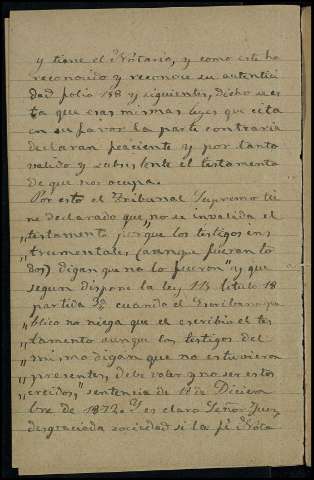 y tiene el Notario, y como este ha
reconocido y reconoce su autentici
dad folio 158 y siguientes, dicho se es
ta que esas mismas leyes que cita
en su favor la parte contraria
declaran y por tanto
valido y subsistente el testamento
de que nos ocupa.
Por esto el Tribunal Supremo tie
ne declarado que, no se invalida el
"testamento porque los testigos ins
"trumentales, (aunque fueran to
dos) digan que no lo fueron" y que
segun dispone la ley 115 titulo 18
partida 3ª cuando el Escribano pu
"blico no niega que el escribio el tes
"tamento aunque los testigos del
"mismo digan que no estuvieron
"presentes, debe valer y no ser estos
"creidos," sentencia de 11 de Diciem
bre de 1872. Y es claro Señor Juez
desgraciada sociedad si la fé Nota